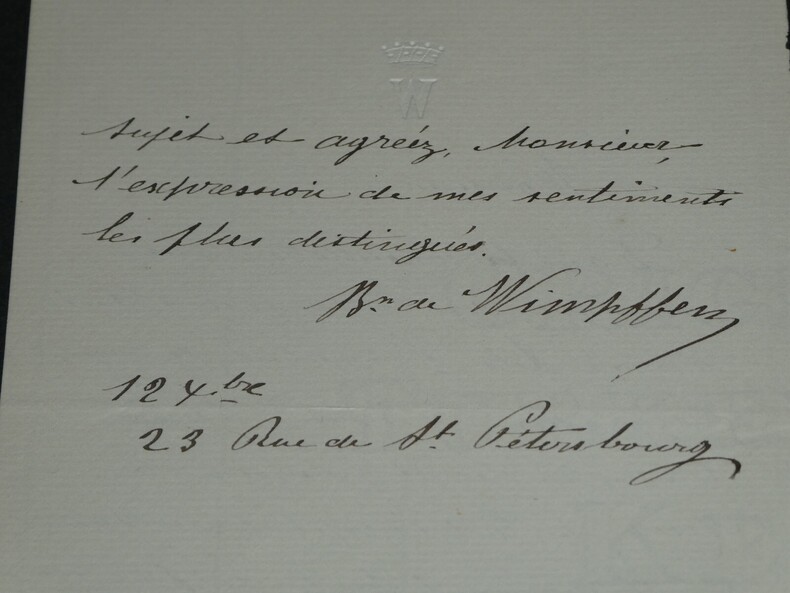 W
sujet et agréez, Monsieur,
l'expression de mes sentiments
les plus distingués.
Bn de Wimpffen
12 Xbre
23 Rue de St Pétersbourg